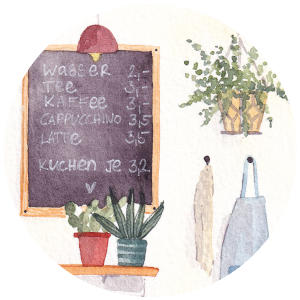 Wasser 2,-
Tee 3,-
Kaffee 3,-
Cappuchino 3,5
Latte 3,5
Kuchen je 3,2